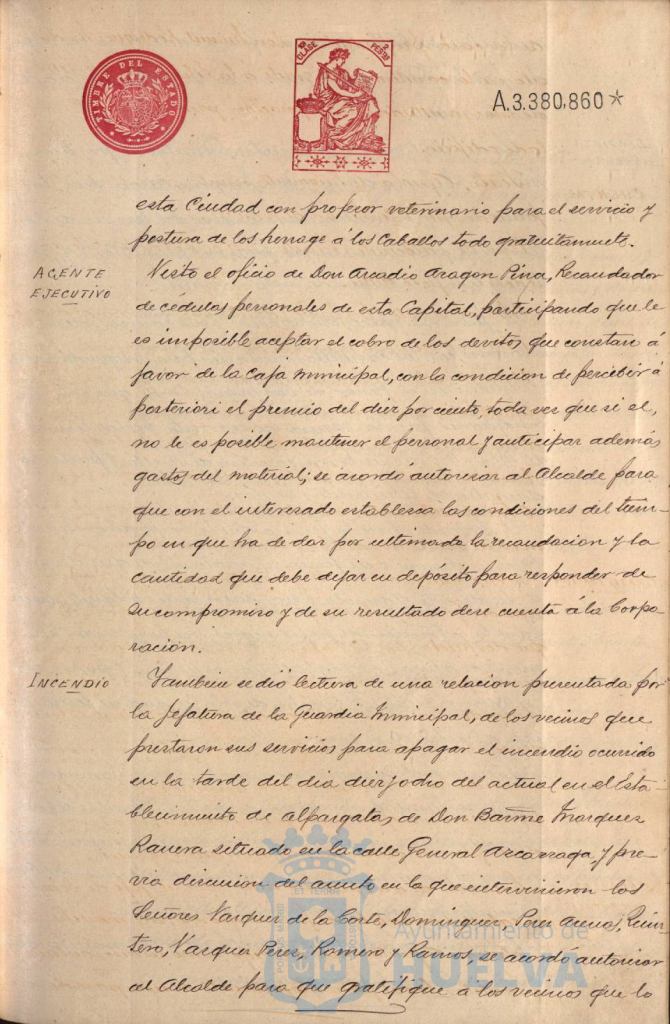 TIMBRE DEL ESTADO
10ª CLASE 2 PESTAS
A.3.380,860*
esta Ciudad con profesor veterinario para el servicio y
postura de los herrage á los Caballos todo gratuitamente.
AGENTE
EJECUTIVO
Visto el oficio de Don Arcadio Aragon Pina, Recaudador
de cédulas personales de esta Capital, participando que le
es imposible aceptar el cobro de los devitos que constan á
favor de la Caja Municipal, con la condicion de percibir á
posteriori el premio del diez por ciento, toda vez que si el,
no le es posible mantener el personal y anticipar además
gastos del material; se acordó autorizar al Alcalde para
que con el interesado establezca las condiciones del tiem-
po en que ha de dar por ultimada la recaudacion y la
cantidad que debe dejar en depósito para responder de
su compromiso y de su resultado dese cuenta á la Corpo
racion.
INCENDIO
Tambien se dió lectura de una relacion presentada por
la Jefatura de la Guardia Municipal, de los vecinos que
prestaron sus servicios para apagar el incendio ocurrido
en la tarde del dia diez y ocho del actual en el Esta-
blecimiento de alpargatas de Don Barme Marquez
situado en la calle General Azcarraga, y pre-
via discusion del asunto en la que intervinieron los
Señores Vazquez de la Corte, Dominguez, Perez Quin-
tero, Vazquez Perez, Romero y Ramos, se acordó autorizar
al Alcalde para que gratifique a los vecinos que lo
Ayuntamiento de
HUELVA